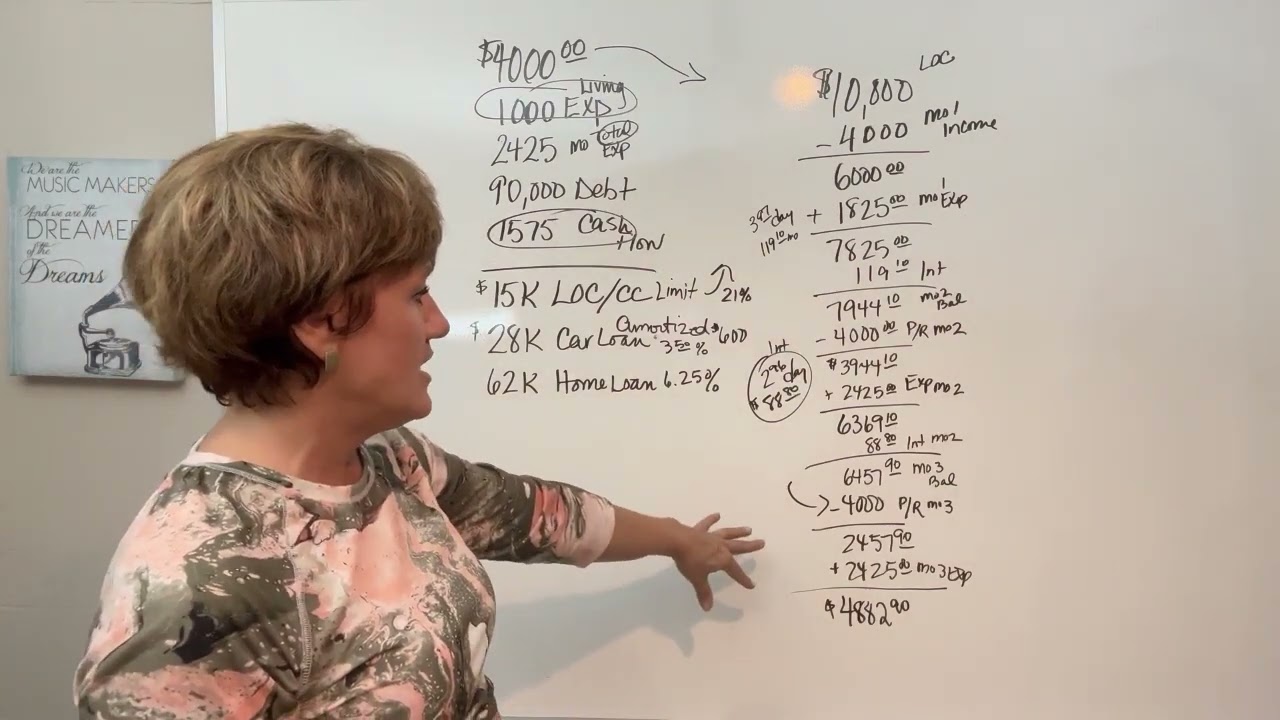 We are the
MUSIC MAKERS
And we are the
DREAME
of the
Dreams
$4000.00
1000 Living Exp
2425 mo Total Exp
90,000 Debt
1575 Cash Flow
$15K LOC/CC Limit 21%
$28K Car Loan Amortized 3.50% $600
62K Home Loan 6.25%
LOC
$10,000
- 4000 mo 1 Income
6000.00
+ 1825.00 mo 1 Exp
day
119.10 mo
7825.00
119.10 Int
7944.10 mo2 Bal
- 4000.00 P/R mo2
$3944.10
+ 2425.00 Exp mo2
Int
2.96 day
$88.80
6369.10
88.80 Int mo2
6457.90 mo3 Bal
- 4000 P/R mo3
2457.90
+ 2425.00 mo3 Exp
$4882.90